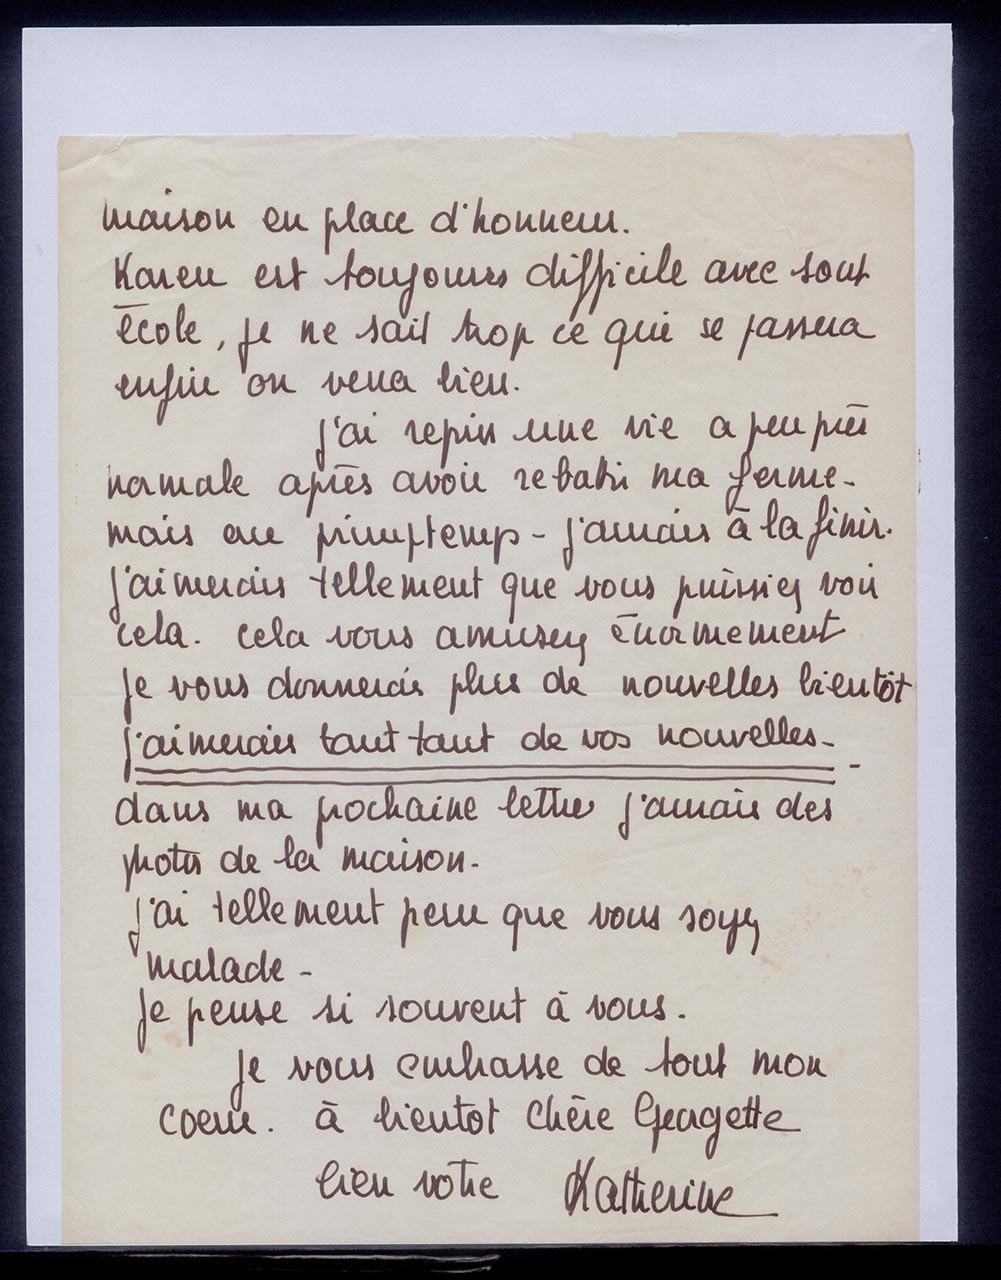 maison en place d'honneur.
Karen est toujours difficile avec sout
école, je ne sait trop ce qui se passera
enfin on verra bien.
j'ai repris une vie a peu près
normale après avoir rebati ma ferme-
mais au primptemp - j'aurais à la finir.
j'aimerais tellement que vous puissiez voir
cela. cela vous amusez énormement
je vous donnerais plus de nouvelles bientôt
j'aimerais tant tant de vos nouvelles-
dans ma prochaine lettre j'aurais des
photos de la maison.
j'ai tellement peur que vous soyez
malade -
je pense si souvent à vous.
je vous embrasse de tout mon
coeur. à bientot chère Georgette
bien votre Katherine